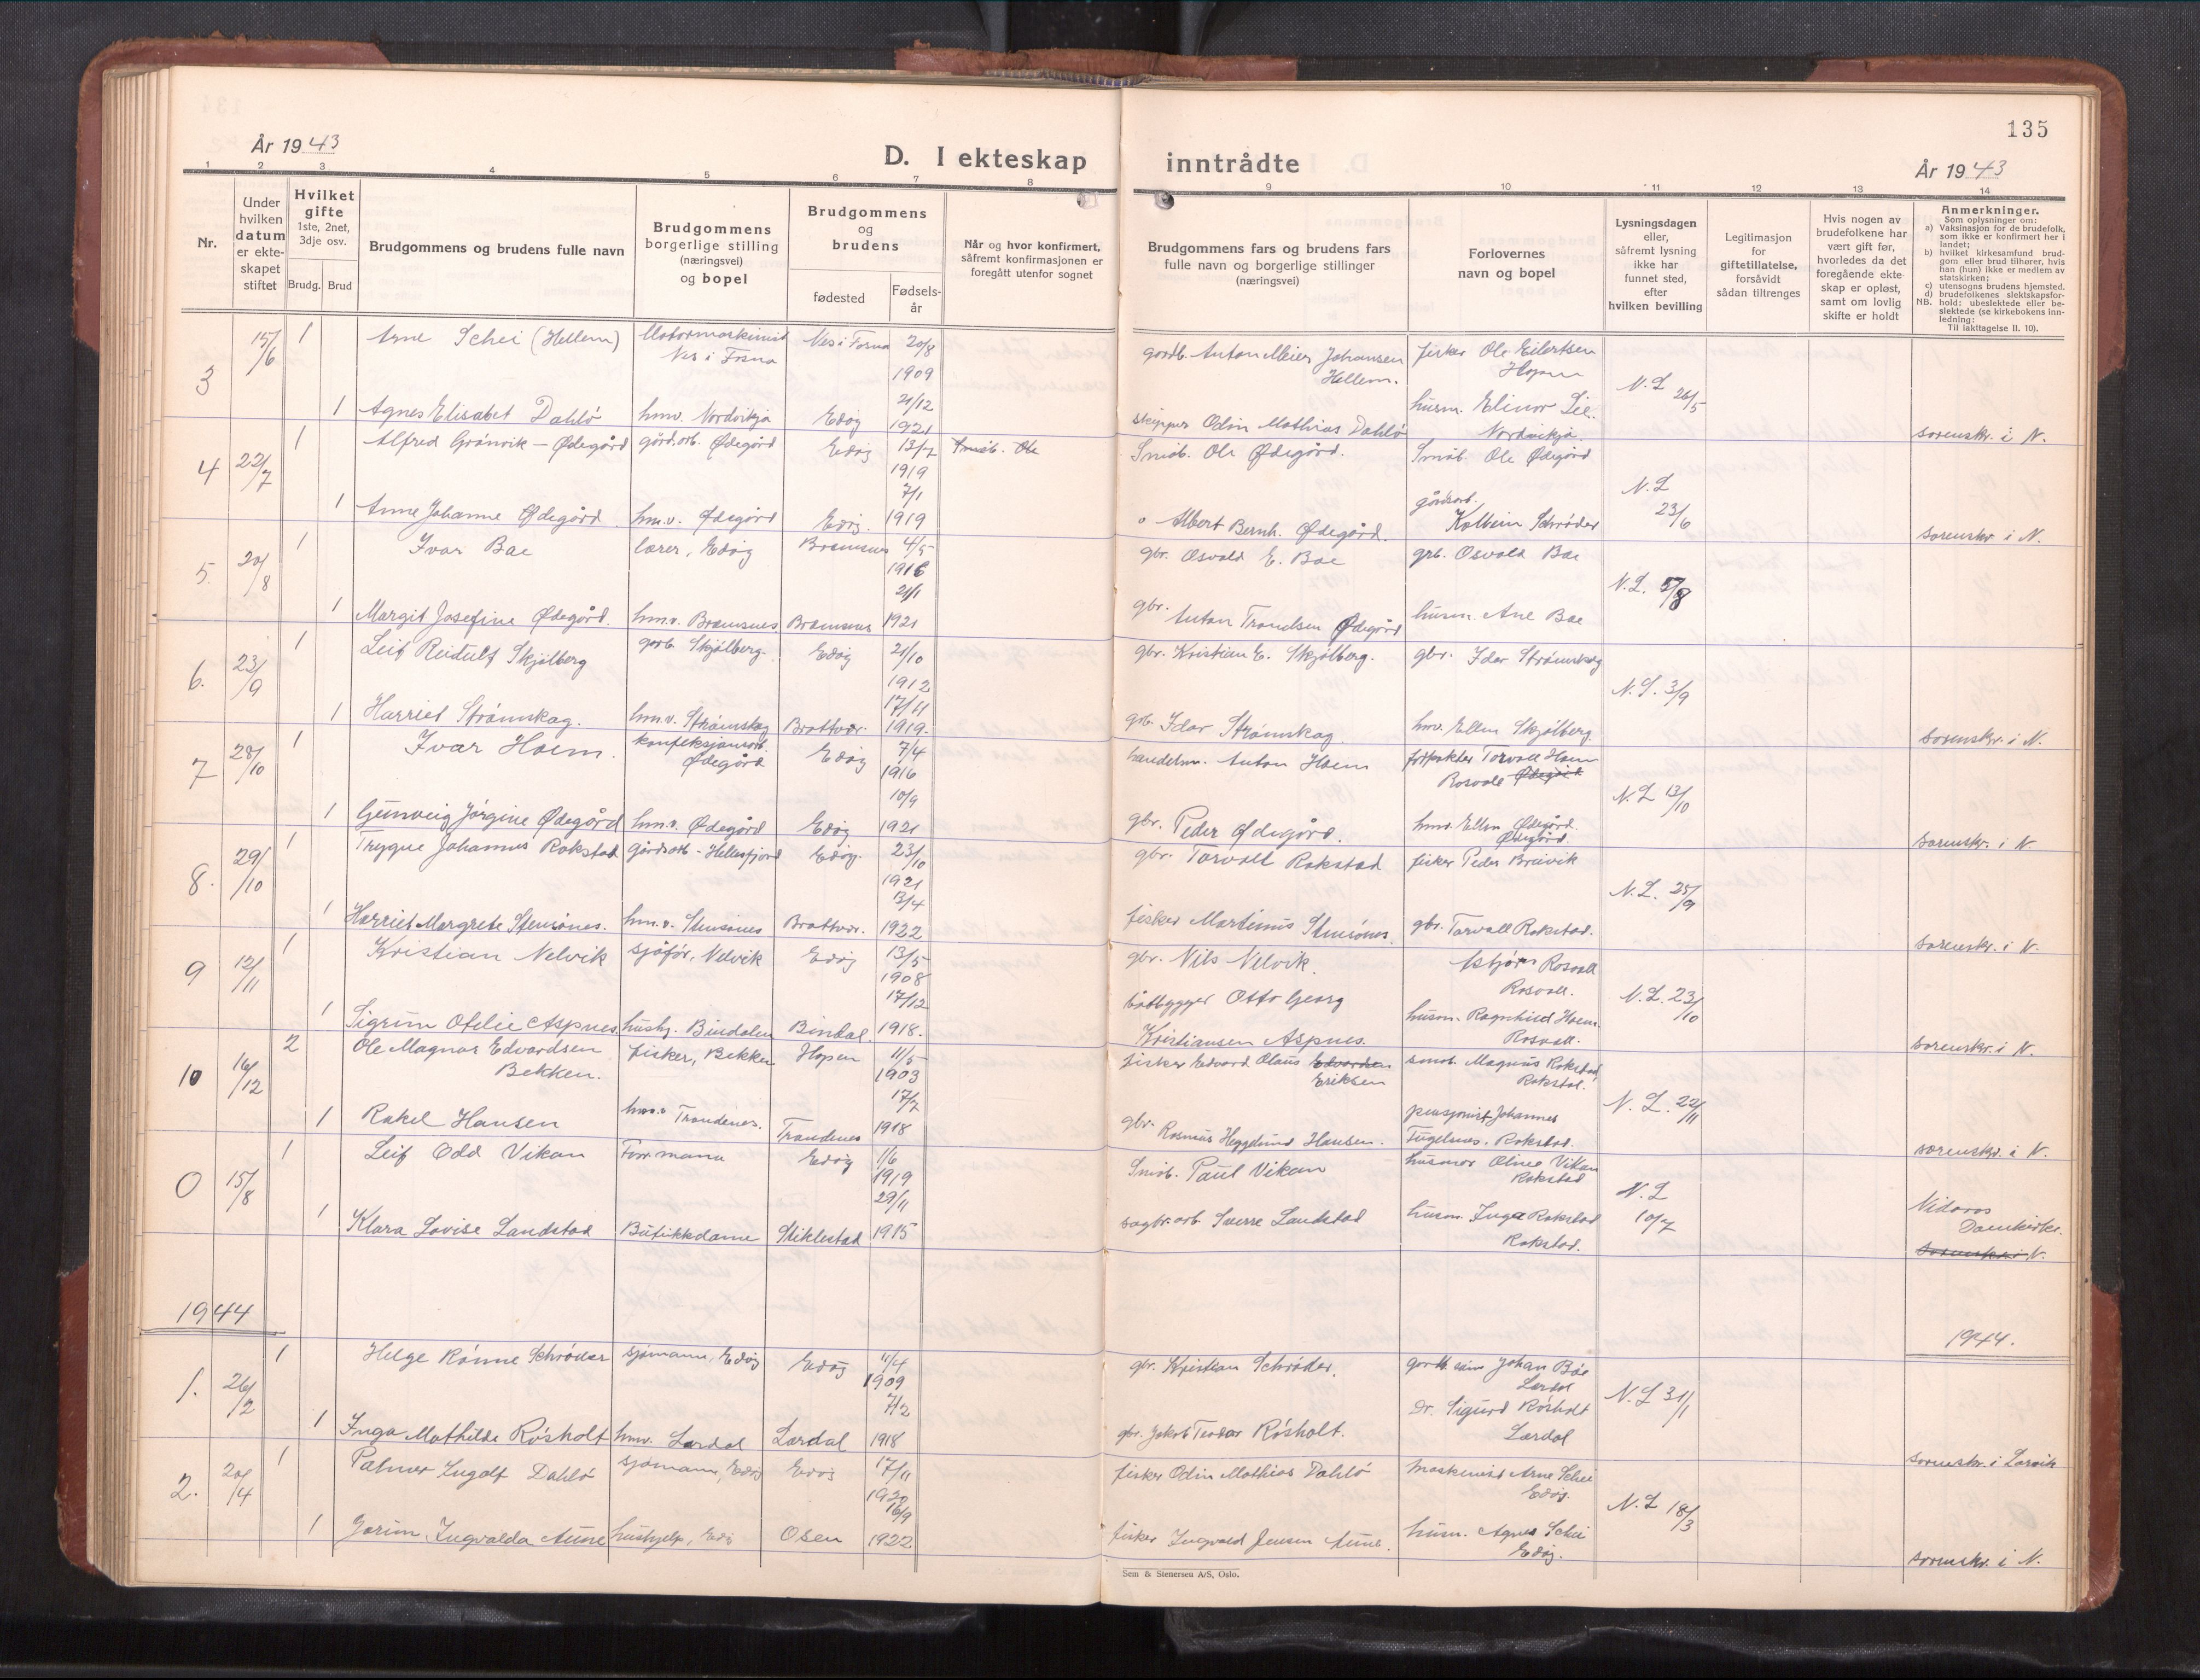 135
År 1943
D. I ekteskap inntrådte
År 1943
1 2 3 4 5 6 7 8 9 10 11 12 13 14
Nr.
Under hvilken datum er ekteskapet stiftet
Hvilket gifte 1ste, 2net, 3dje osv.
Brudg. Brud
Brudgommens og brudens fulle navn
Brudgommens borgerlige stilling (næringsvei) og bopel
Brudgommens og brudens
fødested
Fødselsår
Når og hvor konfirmert, såfremt konfirmasjonen er foregått utenfor sognet
Brudgommens fars og brudens fars fulle navn og borgerlige stillinger (næringsvei)
Forlovernes navn og bopel
Lysningsdagen eller, såfremt lysning ikke har funnet sted, efter hvilken bevilling
Legitimasjon for giftetillatelse, forsåvidt sådan tiltrenges
Hvis nogen av brudefolkene har vært gift før, hvorledes da det foregående ekteskap er opløst, samt om lovlig skifte er holdt
Anmerkninger.
Som oplysninger om:
a) Vaksinasjon for de brudefolk, som ikke er konfirmert her i landet;
b) hvilket kirkesamfund brudgom eller brud tilhører, hvis han (hun) ikke er medlem av statskirken;
c) utensogns brudens hjemsted.
d) brudefolkenes slektskapsforhold: ubeslektede eller beslektede (se kirkebokens innledning:
NB. Til iakttagelse II. 10).
3 15/6 1 Arne Schei (Hellem) Motormaskinist Nes i Fosna Nes i Fosna 20/8 1909 gardb. Anton Meier Johansen Hellem. fisker Ole Eilertsen Hopen N.L 26/5
1 Agnes Elisabet Dahlø hmv. Nordvikja Edøy 21/12 1921 skipper Odin Mathias Dahlø husm. Elinor Lie. Nordvikja. sorenskr. i N.
4 22/7 1 Alfred Grønvik - Ødegård gårdarb. Ødegård Edøy 13/7 1919 Småb. Ole Småb. Ole Ødegård. Småb. Ole Ødegård N.L 23/6
1 Anne Johanne Ødegård hm.v. Ødegård Edøy. 7/1 1919 Albert Bernh. Ødegård. gårdsarb. Kolbein Schrøder sorenskr i N.
5. 20/8 1 Ivar Bae lærer, Edøy Bremsnes 4/5 1916 gbr. Osvald E. Bae grb. Osvald Bae N.L. 5/8
1 Margit Josefine Ødegård. hm.v. Bremsnes Bremsnes 21/1 1921 gbr. Anton Trondsen Ødegård husm. Ane Bae
6. 23/9 1 Leif Reidulf Skjølberg garb. Skjølberg. Edøy 21/10 1912 gbr. Kristian E. Skjølberg. gbr. Idar Strømskag N.L. 3/9
1 Harriet Strømskag. hm.v. Strømskag Brattvær. 17/11 1919. grb. Idar Strømskag hmv. Ellen Skjølberg sorenskr. i N.
7 28/10 1 Ivar Hoem. konfeksjonsarb. Ødegård Edøy 7/4 1916 handelsm. Anton Hoem Torvall Hoem Rosvoll Ødegård N.L 13/10
1 Gunveig Jørgine Ødegård hm.v. Ødegård Edøy 10/9 1921 gbr. Peder Ødegård. hmv. Ellen Ødegård. Ødegård. sorenskr. i N.
8. 29/10 1 Trygve Johannes Rokstad gårdsarb - Hellesfjord Edøy. 23/10 1921 gbr. Torvall Rokstad fisker Peder Breivik N.L. 25/9
1 Harriet Margrete Stensønes. hm.v. Stensønes Brattvær. 13/4 1922 fisker Martinus Stensønes. gbr. Torvall Rokstad. sorenskr. i N.
9 12/11 1 Kristian Nelvik sjåfør, Nelvik Edøy 13/5 1908 gbr. Nils Nelvik. Asbjørn Rosvoll Rosvoll. N.L. 23/10
1 Sigrun Ofelie Aspnes. hushj. Bindalen Bindal. 17/12 1918. båtbygger Otto Georg Kristiansen Aspnes. husm. Ragnhild Hoem. Rosvoll. sorenskr. i N.
10 16/12 2 Ole Magnar Edvardsen Bekken. fisker, Bekken Hopen 11/5 1903 fisker Edvard Olaus Edvardsen Eriksen småb. Magnus Rokstad Rokstad. N.L. 22/11
1 Rakel Hansen hm.v Trondenes. Trondenes 17/7 1918 gbr. Rasmus Heggelund Hansen. pensjonist Johannes Fuglesnes. Rokstad. sorenskr. i N.
0 15/8 1 Leif Odd Vikan Formann Edøy 1/6 1919 Småb. Paul Vikan husmor Oline Vikan Rokstad N.L 10/7
1 Klara Lovise Landstad Butikkdame Stiklestad 29/11 1915 sagbr.arb. Sverre Landstad husm. Inga Rokstad Rokstad. Nidaros Domkirke. sorenskr. i N.
1944
1944.
1. 26/2 1 Helge Rønne Schrøder sjømann, Edøy Edøy 11/4 1909 gbr. Kristian Schrøder. Johan Bøe Lardal N.L 31/1
1 Inga Mathilde Røsholt hmv. Lardal Lardal 7/2 1918 gbr. Jakob Teodor Røsholt. Dr. Sigurd Røsholt Lardal sorenskr. i Larvik
2. 20/4 1 Palmer Ingolf Dahlø sjømann, Edøy Edøy 17/11 1920 fisker Odin Mathias Dahlø maskinist Arne Schei Edøy. N.L 18/3
1 Jorun Ingvalda Aune hushjelp, Edø Osen 16/9 1922 fisker Ingvald Jensen Aune. husm. Agnes Schei Edøy. sorenskr. i N.
Sem & Stenersen A/S, Oslo.